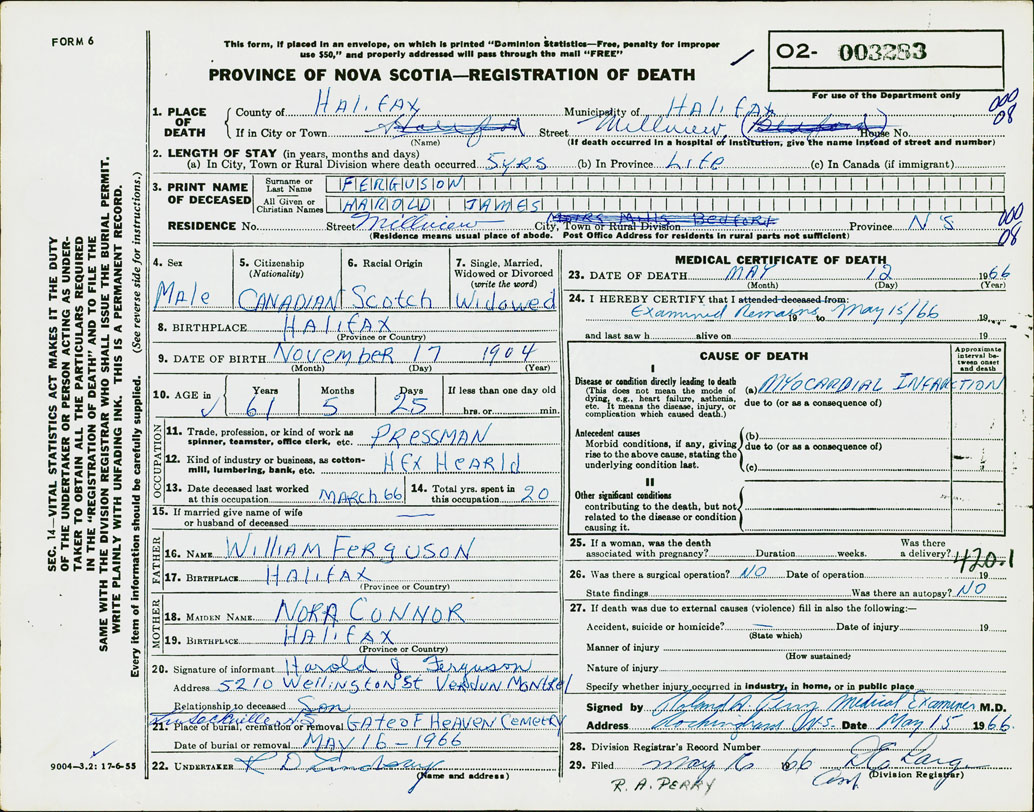 FORM 6
This form, if placed in an envelope, on which is printed "Dominion Statistics—Free, penalty for improper
use $50," and properly addressed will pass through the mail "FREE"
PROVINCE OF NOVA SCOTIA—REGISTRATION OF DEATH
O2- 003283
For use of the Department only
000
08
1. PLACE OF DEATH County of Halifax Municipality of Halifax
If in City or Town Street Millview, (Bedford) House No.
(Name) (If death occurred in a hospital or institution, give the name instead of street and number)
2. LENGTH OF STAY (in years, months and days)
(a) In City, Town or Rural Division where death occurred 5 yrs (b) In Province Life (c) In Canada (if immigrant)
3. PRINT NAME OF DECEASED Surname or Last Name FERGUSION
All Given or Christian Names HAROLD JAMES
RESIDENCE No. Street Millview City, Town or Rural Division MILLS BEDFORD Province N S
(Residence means usual place of abode. Post Office Address for residents in rural parts not sufficient)
000
08
4. Sex Male
5. Citizenship (Nationality) CANADIAN
6. Racial Origin Scotch
7. Single, Married, Widowed or Divorced (write the word) Widowed
8. BIRTHPLACE HALIFAX
(Province or Country)
9. DATE OF BIRTH November 17 1904
(Month) (Day) (Year)
10. AGE in Years 61 Months 5 Days 25 If less than one day old hrs. or min.
OCCUPATION
11. Trade, profession, or kind of work as spinner, teamster, office clerk, etc. PRESSMAN
12. Kind of industry or business, as cotton-mill, lumbering, bank, etc. HFX HEARLd
13. Date deceased last worked at this occupation MARCH 66
14. Total yrs. spent in this occupation 20
15. If married give name of wife or husband of deceased —
FATHER
16. NAME William Ferguson
17. BIRTHPLACE Halifax
(Province or Country)
MOTHER
18. MAIDEN NAME NORA CONNOR
19. BIRTHPLACE HALIFAX
(Province or Country)
20. Signature of informant Harold J Ferguson
Address 5210 Wellington St Verdun Montrel
Relationship to deceased Son
Sackville N.S
21. Place of burial, cremation or removal GATE OF HEAVEN CEMETRY
Date of burial or removal MAY 16 - 1966
22. UNDERTAKER R D Lindsay
(Name and address)
MEDICAL CERTIFICATE OF DEATH
23. DATE OF DEATH MAY 12 1966
(Month) (Day) (Year)
24. I HEREBY CERTIFY that I attended deceased from:
Examined Remains 19 to May 15/66 19
and last saw h alive on 19
CAUSE OF DEATH
Approximate interval between onset and death
I
Disease or condition directly leading to death (a) MYOCARDIAL INFARCTION
(This does not mean the mode of dying, e.g., heart failure, asthenia, etc. It means the disease, injury, or complication which caused death.) due to (or as a consequence of)
Antecedent causes (b)
Morbid conditions, if any, giving rise to the above cause, stating the underlying condition last. due to (or as a consequence of)
(c)
II
Other significant conditions
contributing to the death, but not related to the disease or condition causing it.
25. If a woman, was the death associated with pregnancy? Duration weeks. Was there a delivery?
420.1
26. Was there a surgical operation? NO Date of operation 19
State findings Was there an autopsy? NO
27. If death was due to external causes (violence) fill in also the following:—
Accident, suicide or homicide? — Date of injury 19
(State which)
Manner of injury
(How sustained)
Nature of injury
Specify whether injury occurred in industry, in home, or in public place
Signed by Roland A. Perry Medical Examiner M.D.
Address Rockingham N.S. Date May 15 1966.
28. Division Registrar's Record Number
29. Filed May 16 66
(Division Registrar)
R. A. PERRY
9004—3.2: 17-6-55
SEC. 14—VITAL STATISTICS ACT MAKES IT THE DUTY
OF THE UNDERTAKER OR PERSON ACTING AS UNDER-
TAKER TO OBTAIN ALL THE PARTICULARS REQUIRED
IN THE "REGISTRATION OF DEATH" AND TO FILE THE
SAME WITH THE DIVISION REGISTRAR WHO SHALL ISSUE THE BURIAL PERMIT.
WRITE PLAINLY WITH UNFADING INK. THIS IS A PERMANENT RECORD.
Every item of information should be carefully supplied. (See reverse side for instructions.)